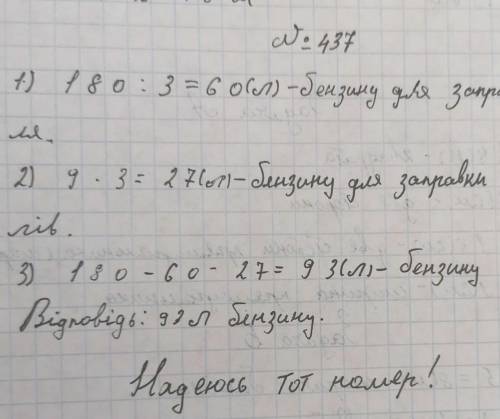 № 437
1) 180 : 3 = 60(л) - бензину для запра
ля.
2) 9 · 3 = 27(л) - бензину для заправки
лів.
3) 180 - 60 - 27 = 93(л) - бензину
Відповідь: 93л бензину.
Надеюсь тот номер!